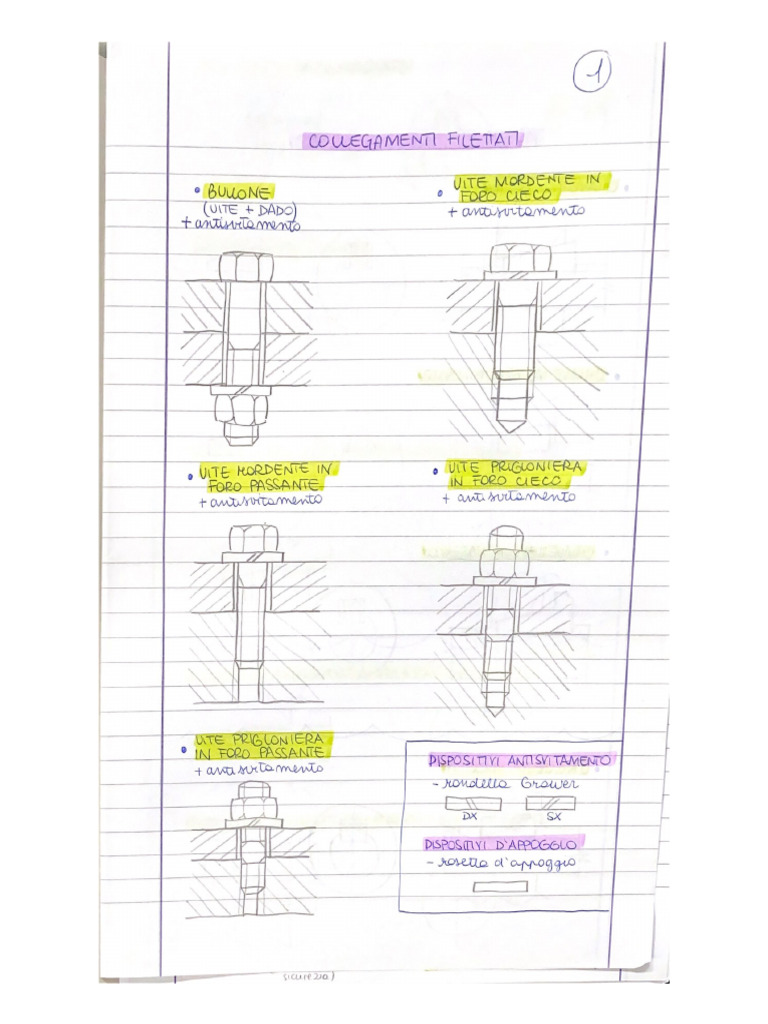 1
COLLEGAMENTI FILETTATI
• BULLONE
(VITE + DADO)
+ antisvitamento
• VITE MORDENTE IN
FORO CIECO
+ antisvitamento
• VITE MORDENTE IN
FORO PASSANTE
+ antisvitamento
• VITE PRIGIONIERA
IN FORO CIECO
+ antisvitamento
• VITE PRIGIONIERA
IN FORO PASSANTE
+ antisvitamento
DISPOSITIVI ANTISVITAMENTO
- rondella Grower
DX SX
DISPOSITIVI D'APPOGGIO
- rosetta d'appoggio
sicurezza)